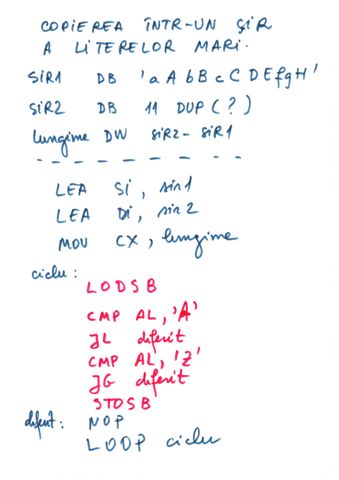 COPIEREA ÎNTR-UN ŞIR
A LITERELOR MARI.
SIR1 DB 'aAbBcCDEfgH'
SIR2 DB 11 DUP(?)
lungime DW SIR2-SIR1
- - - - - - - - -
LEA SI, sir1
LEA DI, sir2
MOV CX, lungime
ciclu:
LODSB
CMP AL, 'A'
JL diferit
CMP AL, 'Z'
JG diferit
STOSB
diferit: NOP
LOOP ciclu